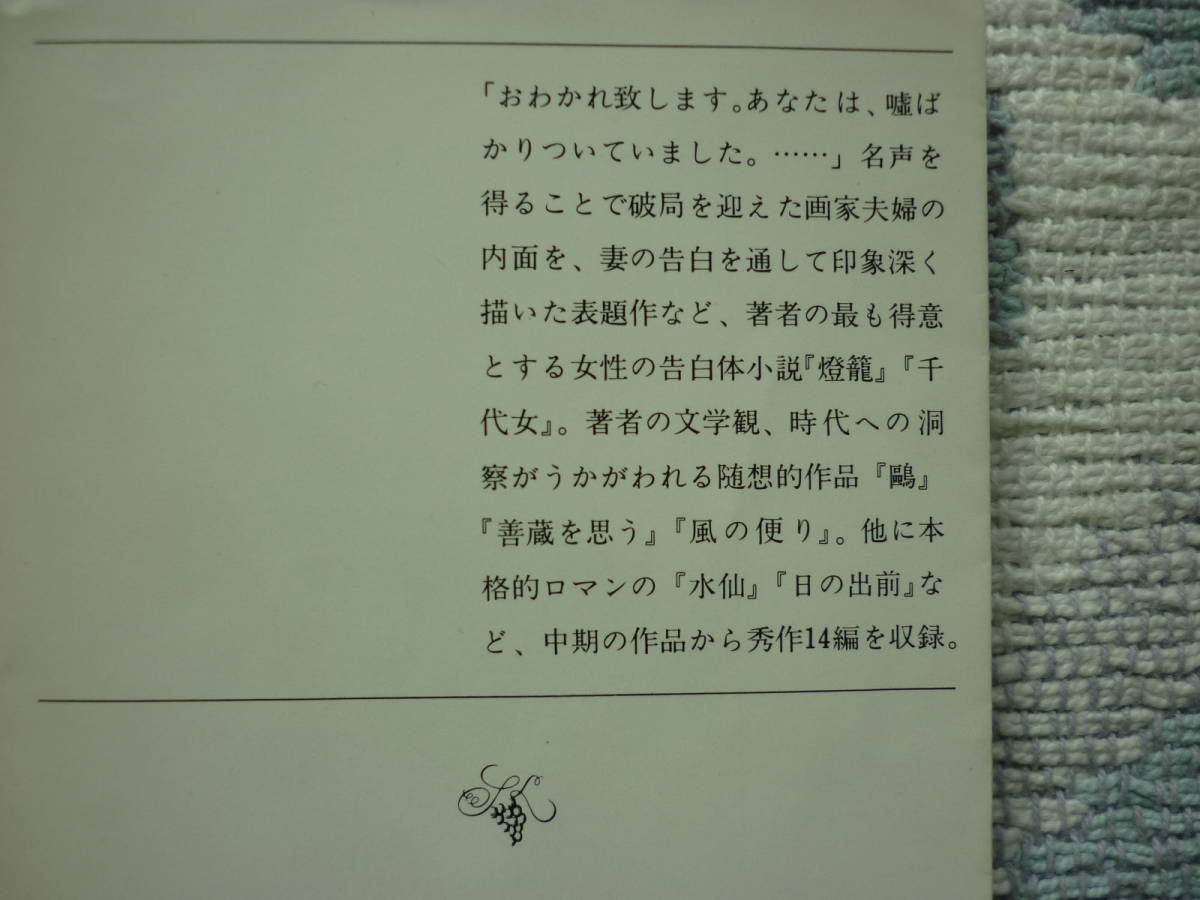 「おわかれ致します。あなたは、嘘ば
かりついていました。……」名声を
得ることで破局を迎えた画家夫婦の
内面を、妻の告白を通して印象深く
描いた表題作など、著者の最も得意
とする女性の告白体小説『燈籠』『千
代女』。著者の文学観、時代への洞
察がうかがわれる随想的作品『鷗』
『善蔵を思う』『風の便り』。他に本
格的ロマンの『水仙』『日の出前』な
ど、中期の作品から秀作14編を収録。